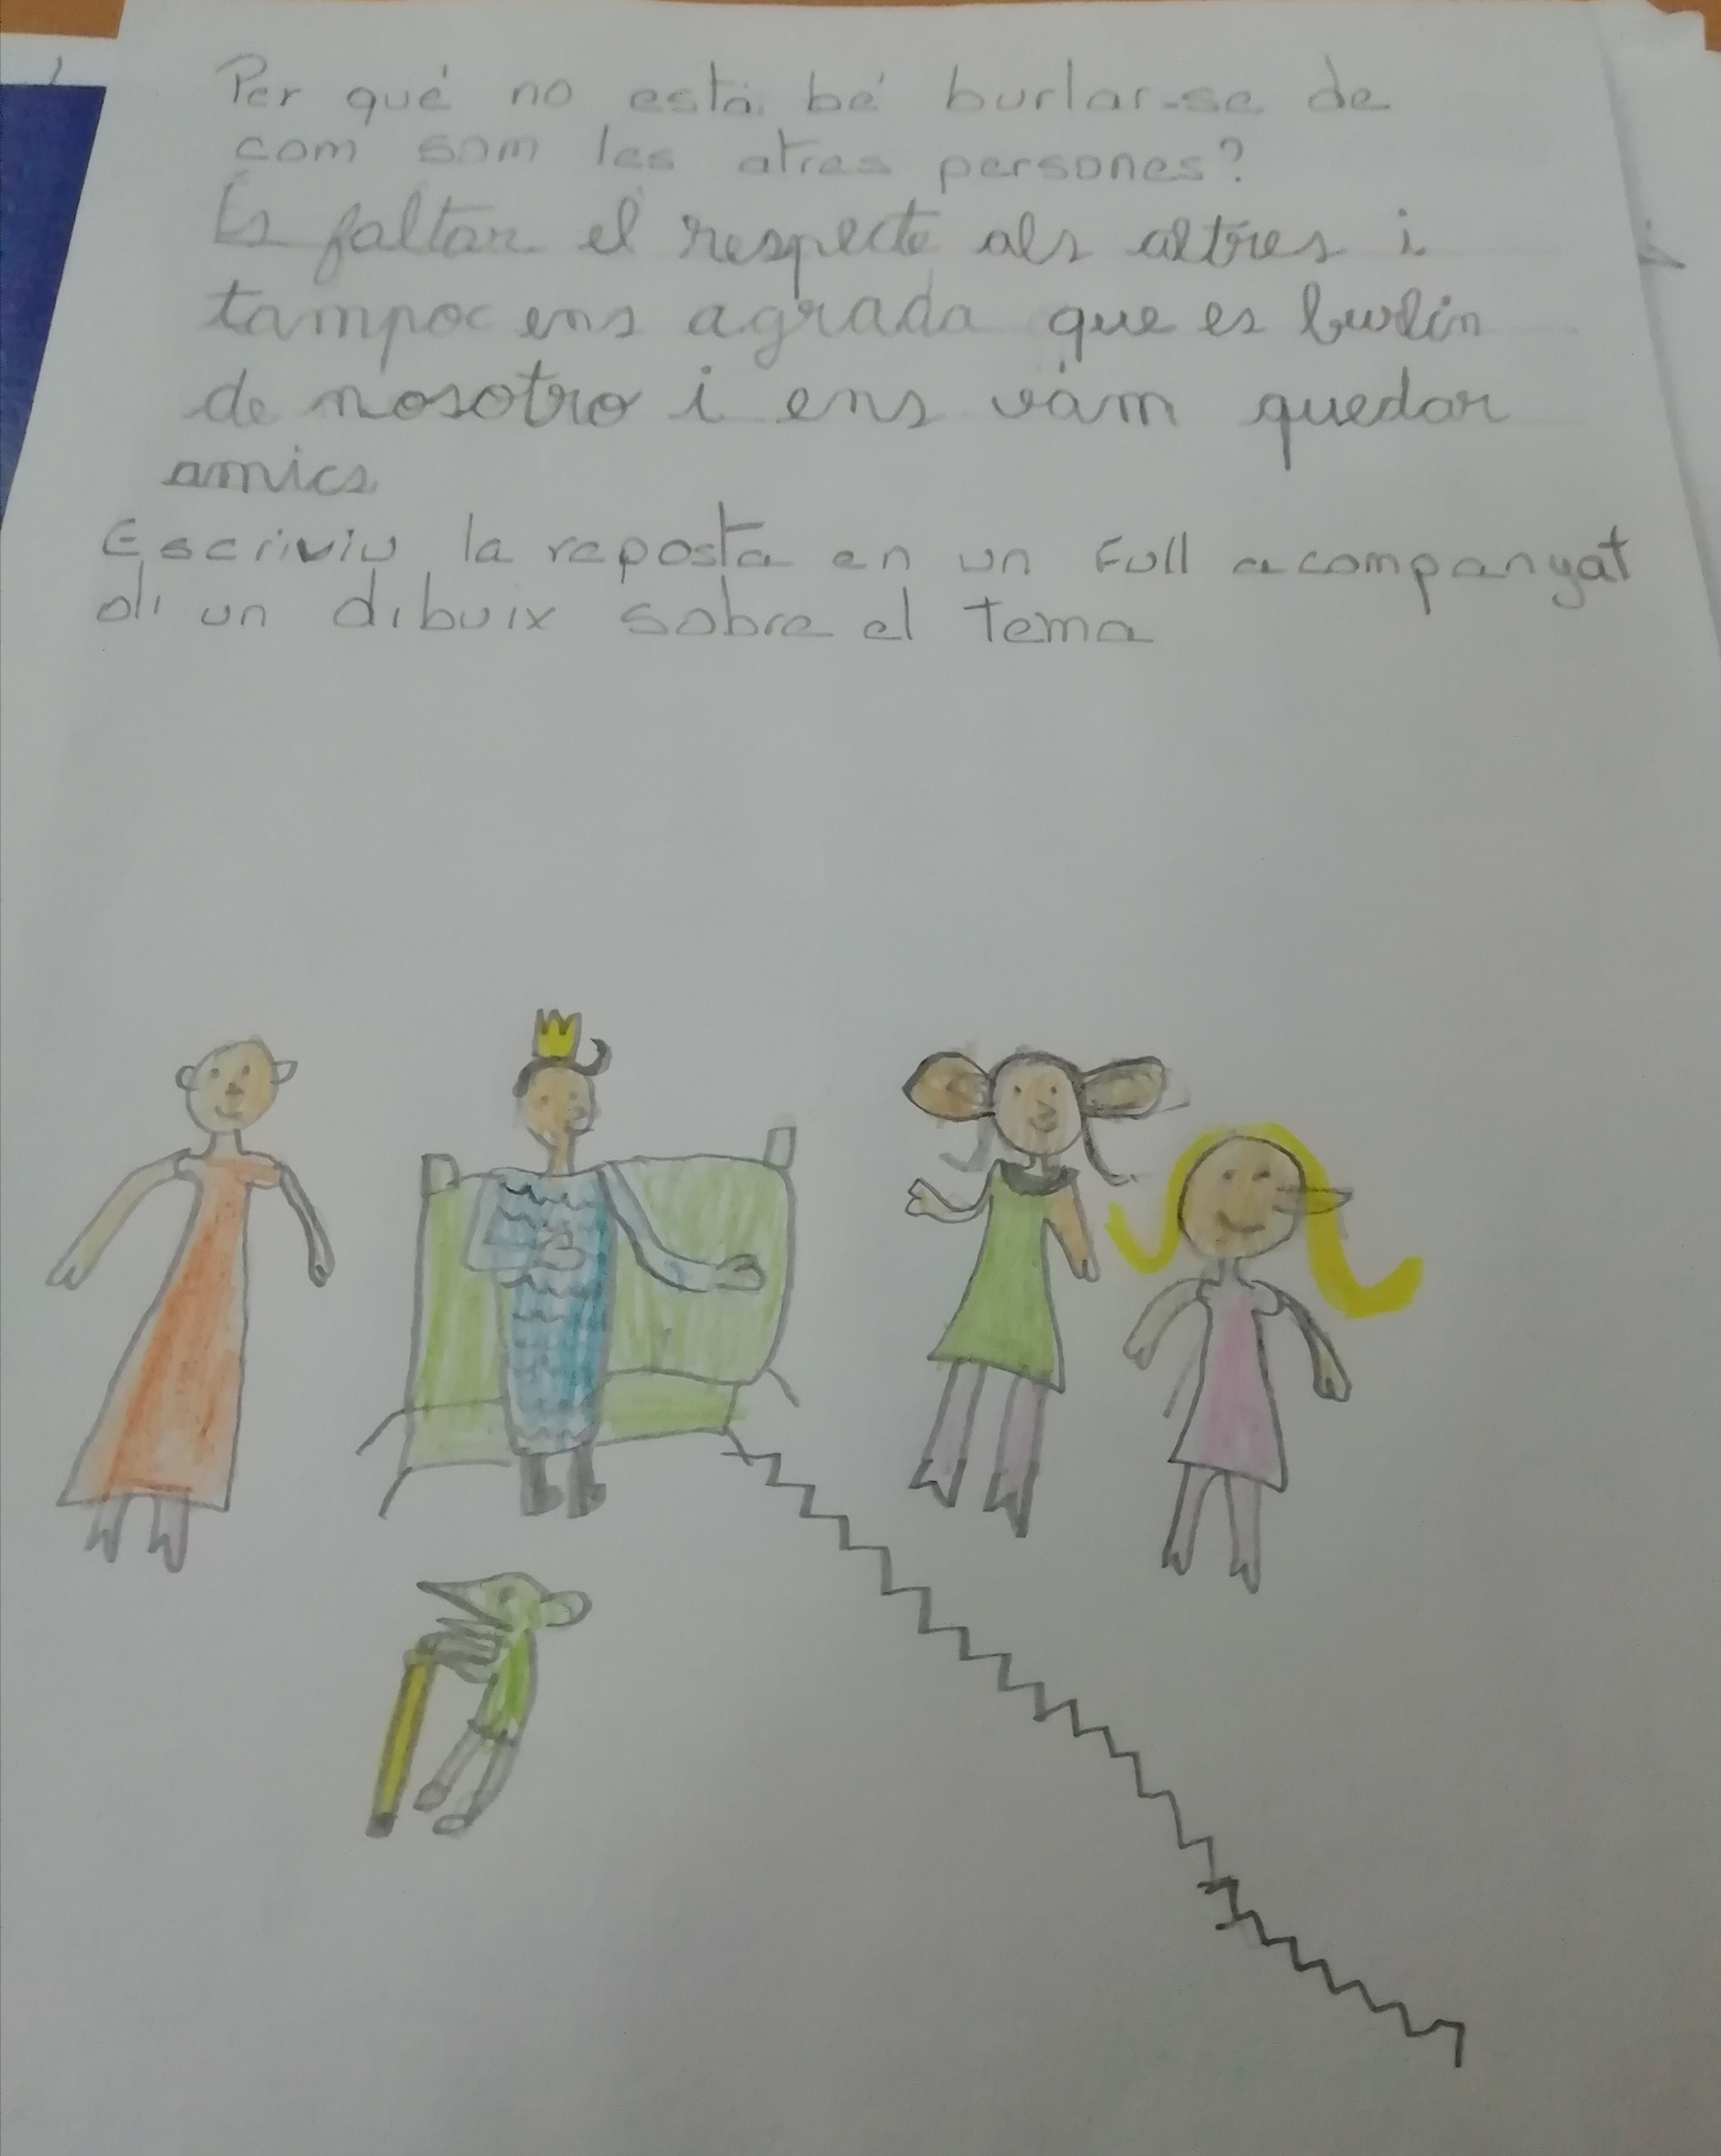 Per qué no està bé burlar-se de
com som les atres persones?
És faltar el respecte als altres i
tampoc ens agrada que es burlin
de nosotro i ens vam quedar
amics
Escriviu la reposta en un Full acompanyat
di un dibuix sobre el tema